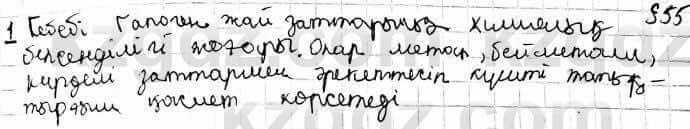 §55
1 Себебі Галоген жай заттарының химиялық
белсенділігі жоғары. Олар металл, бейметалл,
күрделі заттармен әрекеттесіп күшті тотық-
тырғыш қасиет көрсетеді